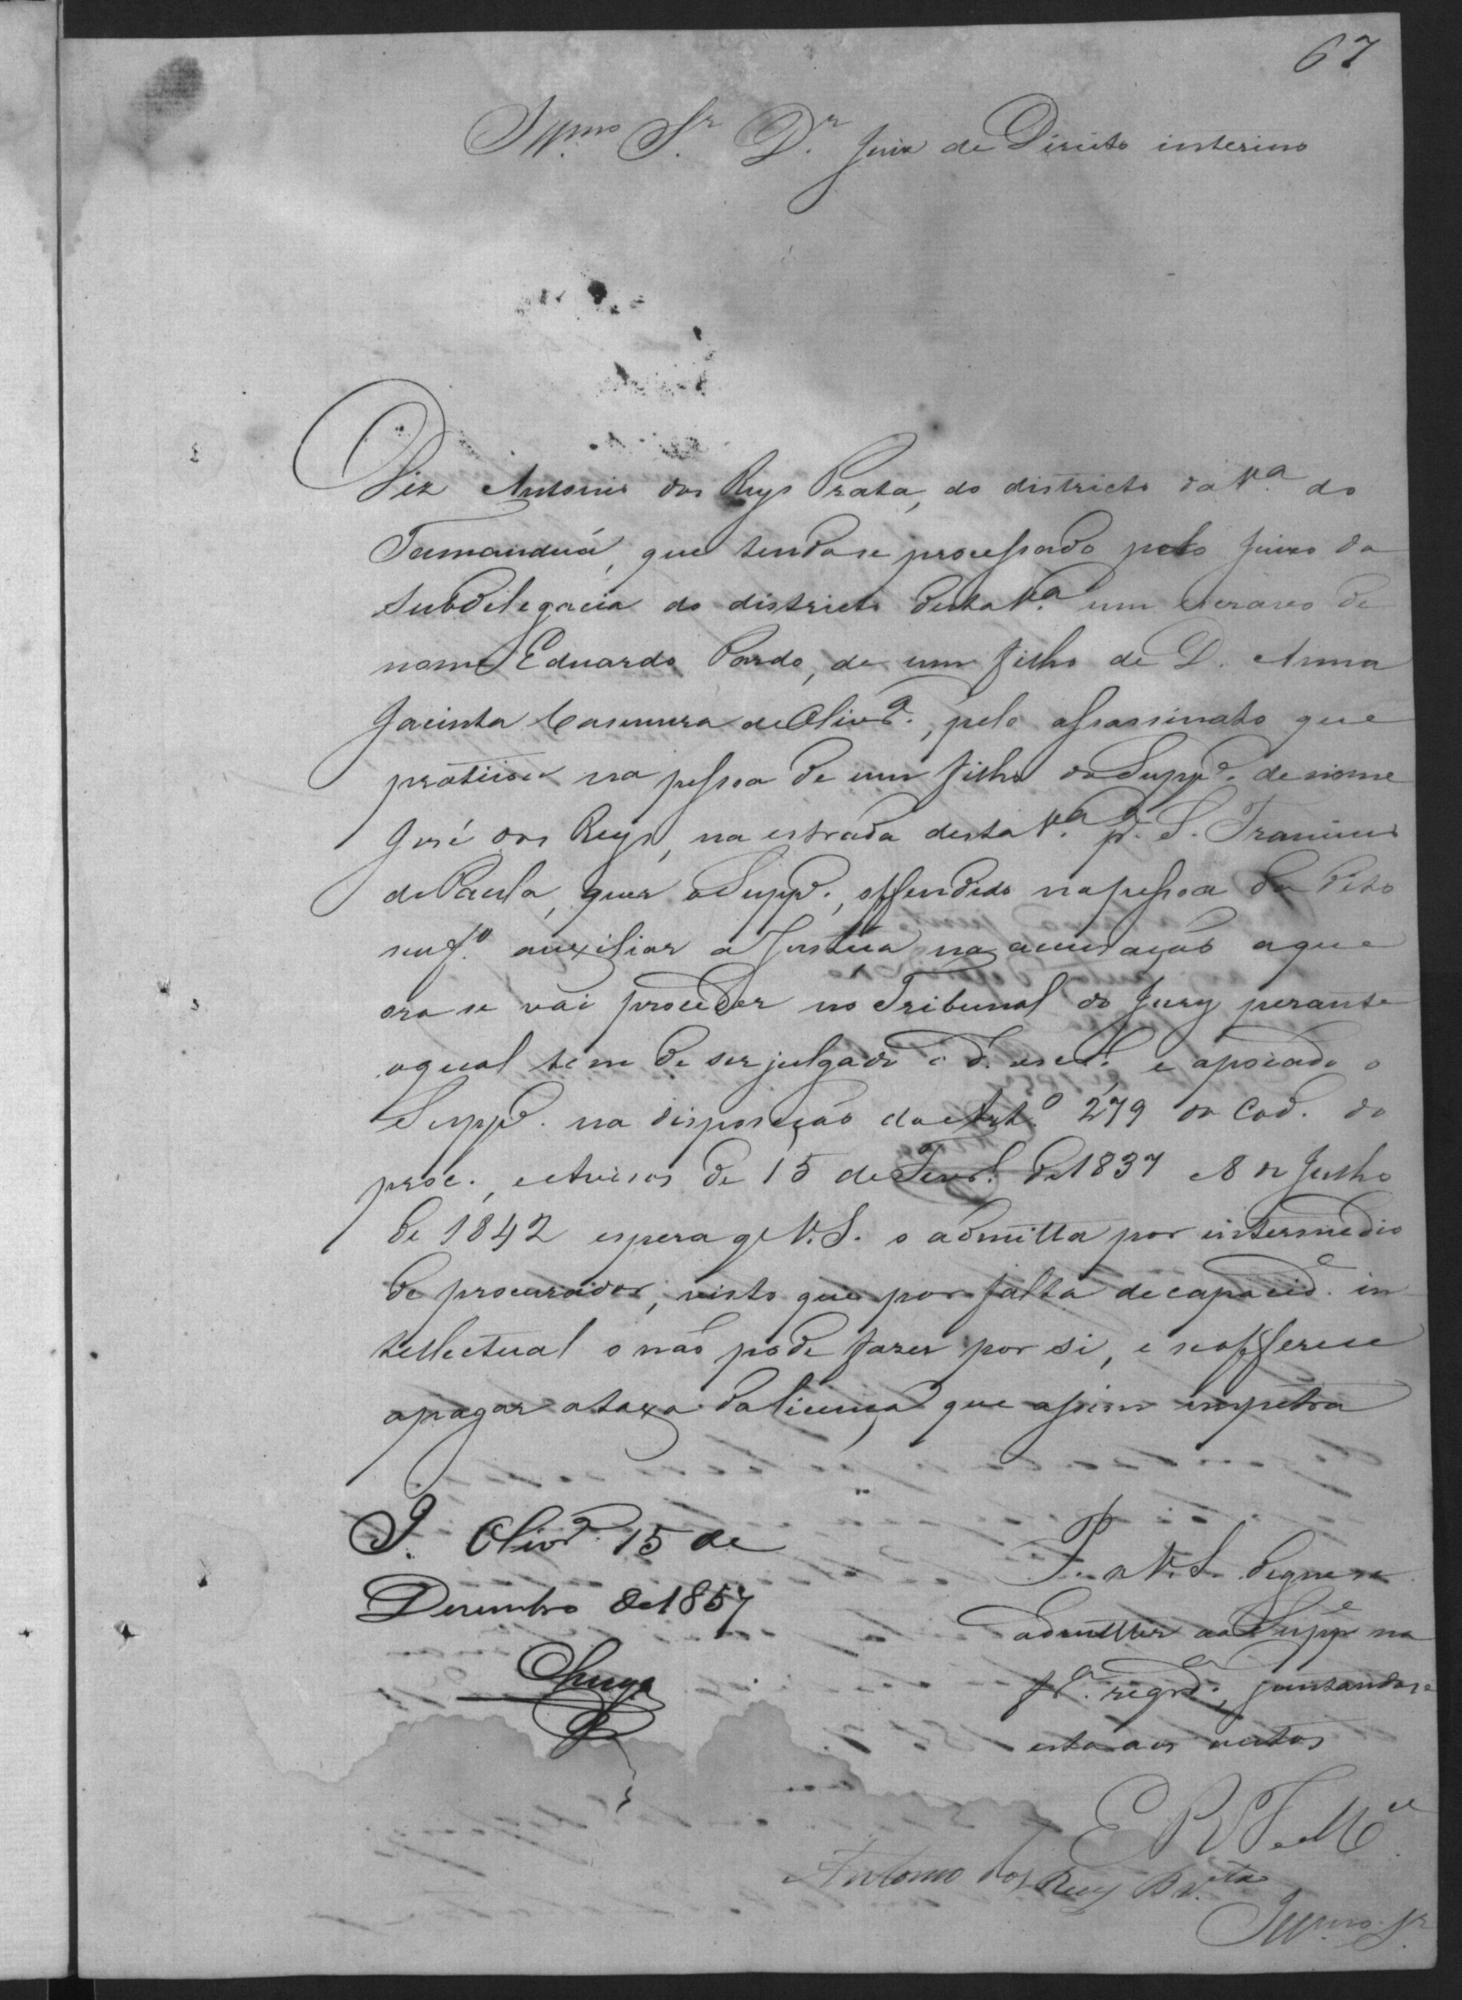 67
Illmo Sr. Dr. Juiz de Direito interino
Diz Antonio dos Reys Prata, do districto da Va. do
Tamanduá, que tendose processado pelo Juizo da
Subdelegacia do districto desta Va. um escravo de
nome Eduardo Pardo, de um filho de D. Anna
Jacinta Casemira de Olivra., pelo assassinato que
praticou na pessoa de um filho do Suppe. de nome
José dos Reys, na estrada desta Va. pa. S. Francisco
de Paula, quer o Suppe., offendido na pessoa do dito
seu fo. auxiliar a Justiça na accusação a que
ora se vai proceder no Tribunal do Jury perante
o qual tem de ser julgado o d. escro. e apoiado o
Suppe. na disposição do Arto. 279 do Cod. do
proc., e Avisos de 15 de Fevro. de 1837 e 8 de Julho
de 1842 espera qe V.S. o admitta por intermedio
de procurador, visto que por falta de capacide. in
tellectual o não pode fazer por si, e se offerece
a pagar a taxa da licença que assim impetra
J. Olivra. 15 de
Dezembro de 1857
P. a V.S. digne se
admittir ao Suppe na
fa. reqda., juntandose
esta aos autos
E R Me
Antonio dos Reys Prata
Illmo. Sr.